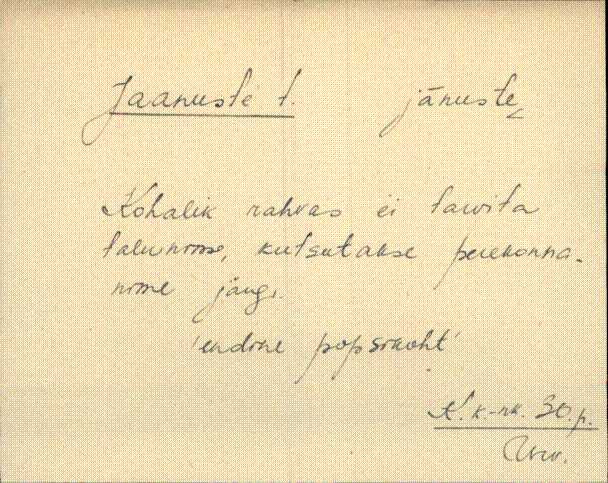 Jaanuste t. jānuste
Kohalik rahvas ei tarvita
talunime, kutsutakse perekonna-
nime järgi.
'endine popsikoht'
K. k.-nk. 30. p.